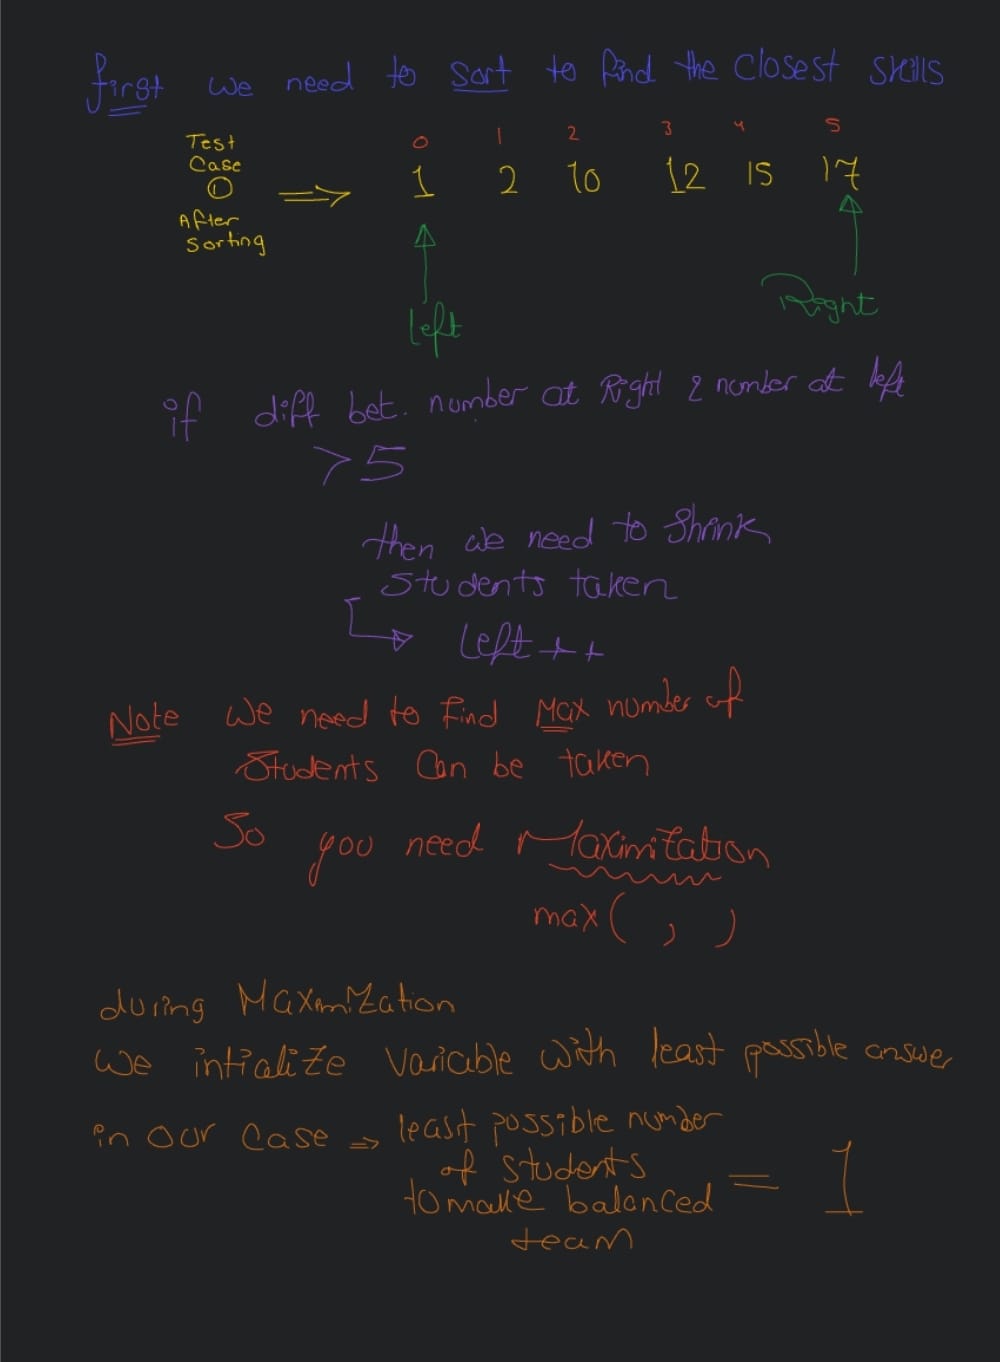 first we need to sort to find the closest skills
Test
Case
①
After
sorting
⇒
0 1 2 3 4 5
1 2 10 12 15 17
left
Right
if diff bet. number at Right & number at left
>5
then we need to Shrink
Students taken
Left++
Note we need to find Max number of
Students Can be taken
So you need Maximization
max( , )
during Maximization
We intialize Variable with least possible answer
in our case ⇒ least possible number
of students
to make balanced
team
= 1